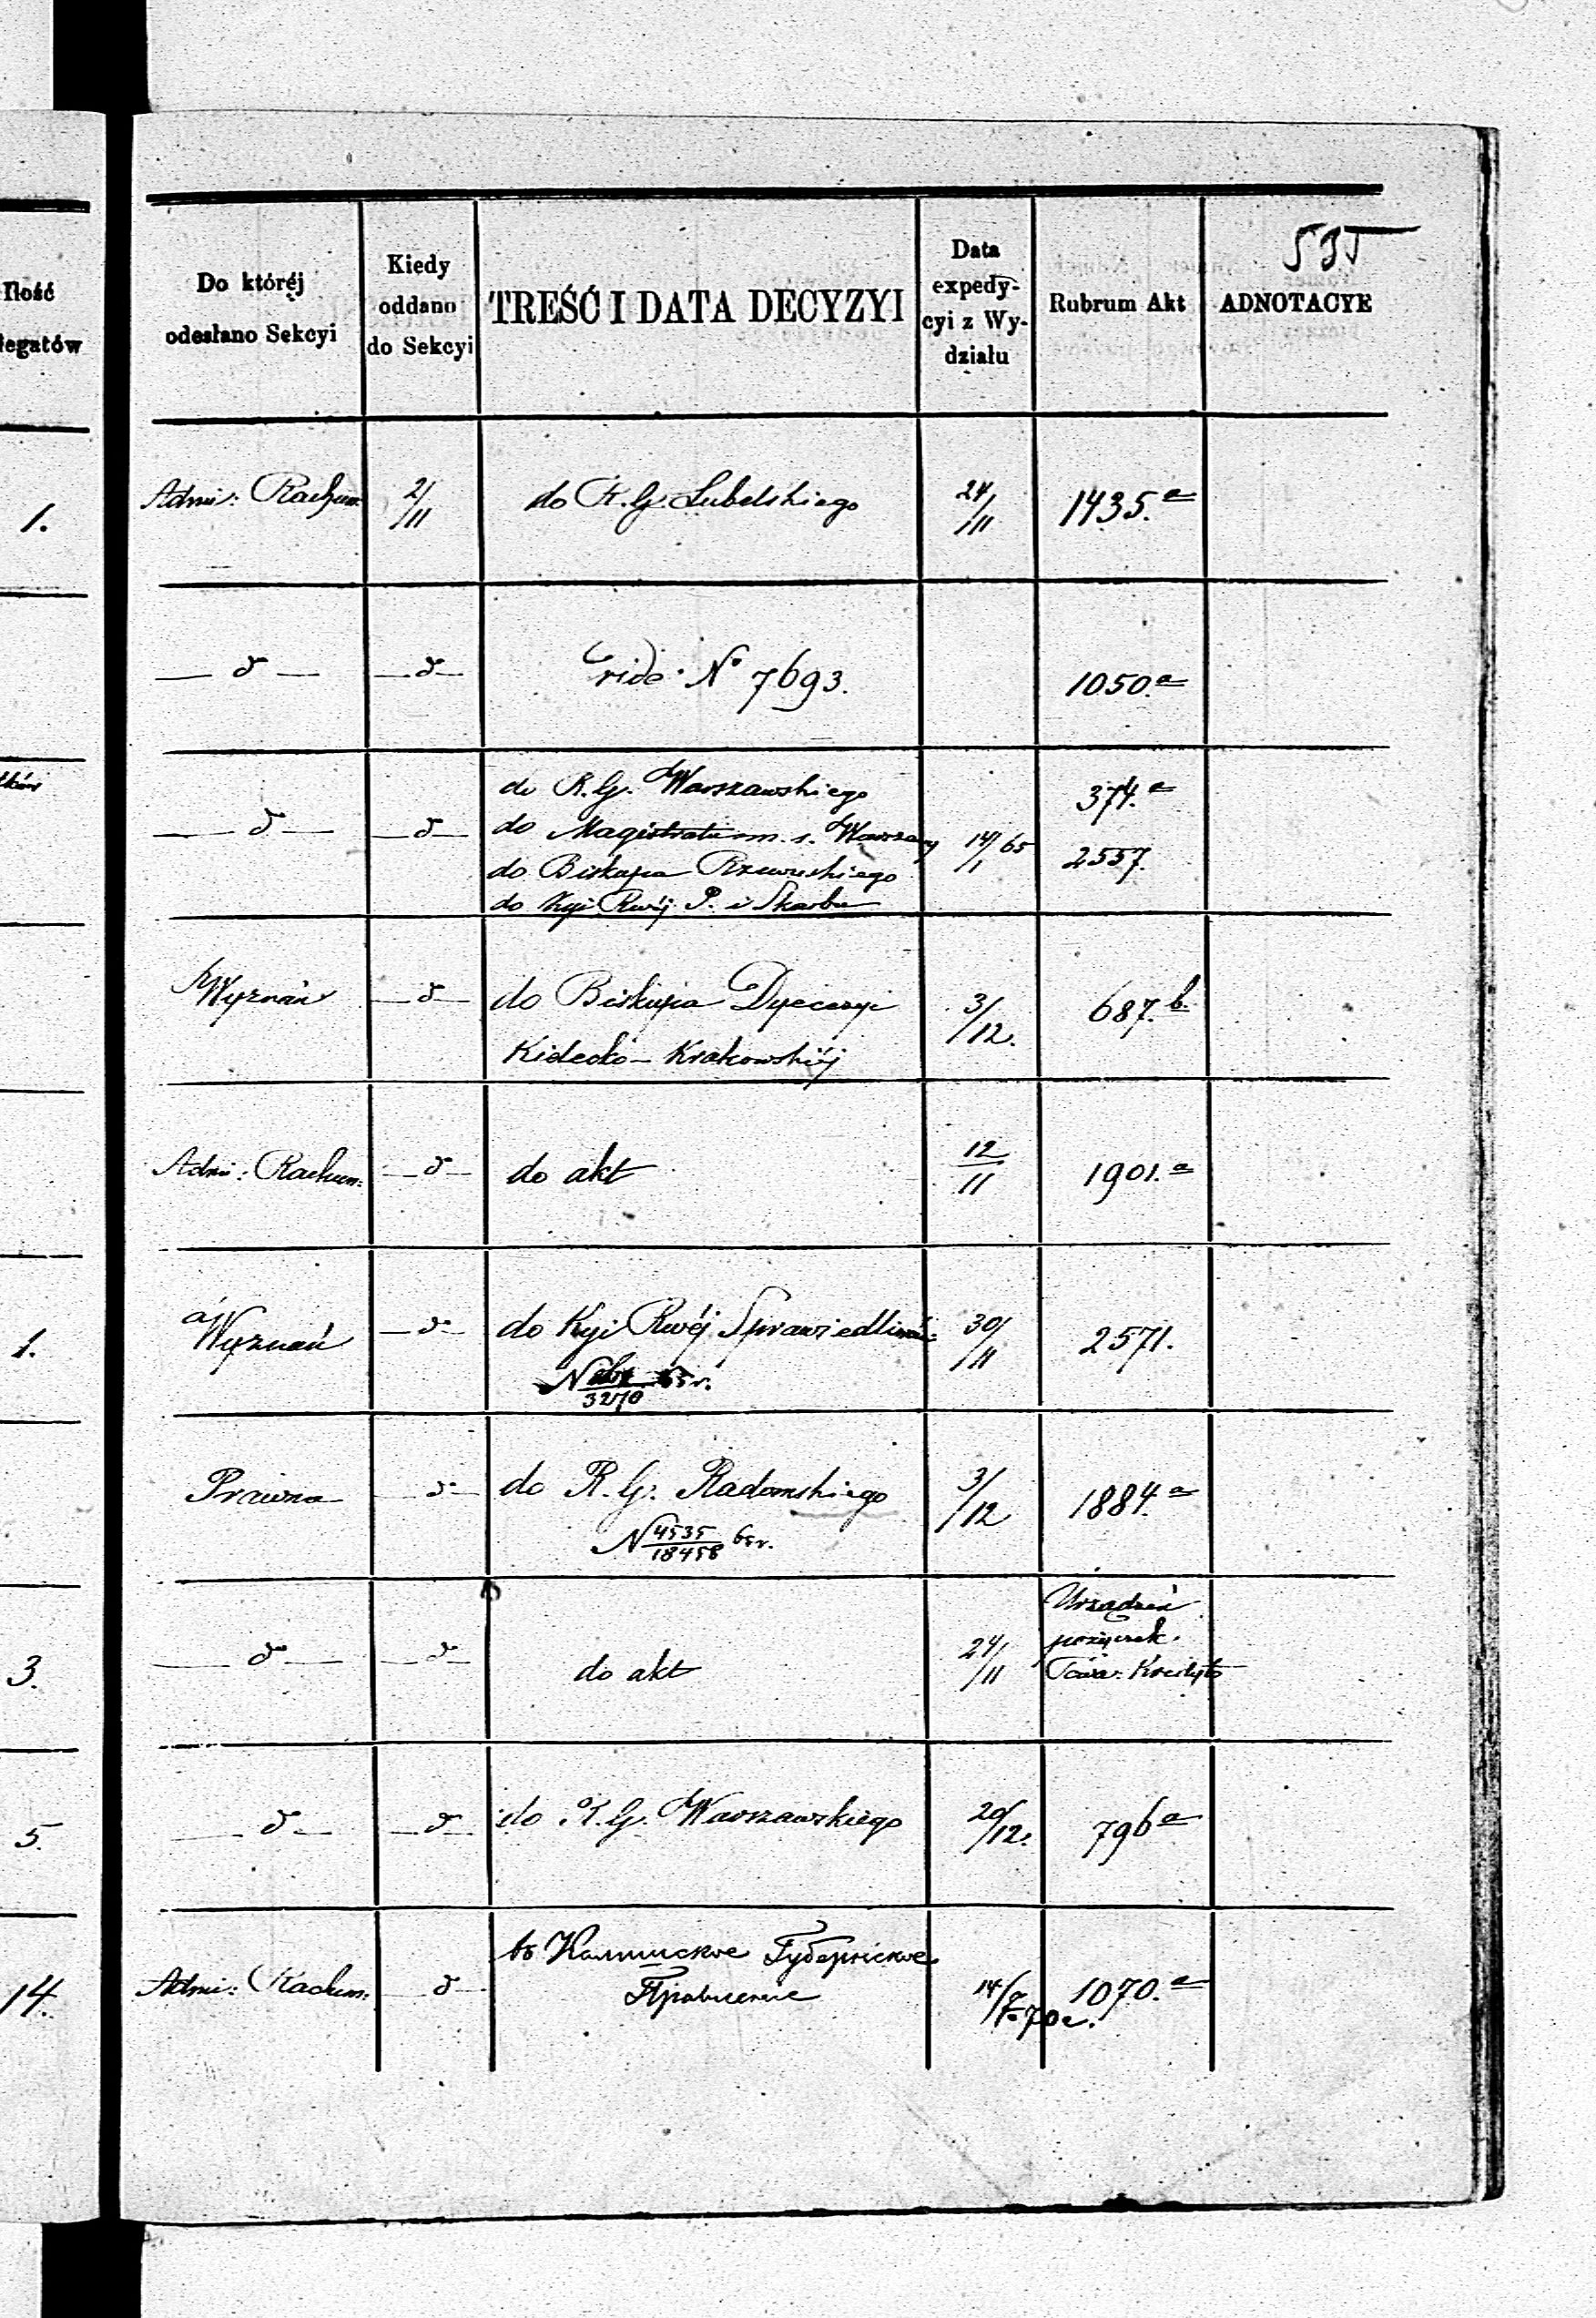 535
Ilość
legatów
Do któréj
odesłano Sekcyi
Kiedy
oddano
do Sekcyi
TREŚĆ I DATA DECYZYI
Data
expedy-
cyi z Wy-
działu
Rubrum Akt
ADNOTACYE
1.
Admi: Rachun:
2/11
do R. G. Lubelskiego
24/11
1435.a
— d —
— d —
Vide N° 7693.
1050.a
— d —
— d —
do R. G. Warszawskiego
do Magistratu m. s. Warszawy
do Biskupa Rzewuskiego
do Kyi Rwéj P. i Skarbu
14/1 65
374.a
2557.
Wyznań
— d —
do Biskupa Dyecezyi
Kielecko-Krakowskiéj
3/12.
687.b.
Admi: Rachun:
— d —
do akt
12/11
1901.a
1.
Wyznań
— d —
do Kyi Rwéj Sprawiedliwoś:
30/11
2571.
Prawna
— d —
do R. G. Radomskiego
N 4535/18458 65r.
3/12
1884.a
3.
— d —
— d —
do akt
24/11
Urządzeń
pożyczek.
Towa: Kredyto
5.
— d —
— d —
do R. G. Warszawskiego
20/12.
796a
14.
Admi: Rachun:
— d —
въ Калишское Губернское
Правленіе
1070.a